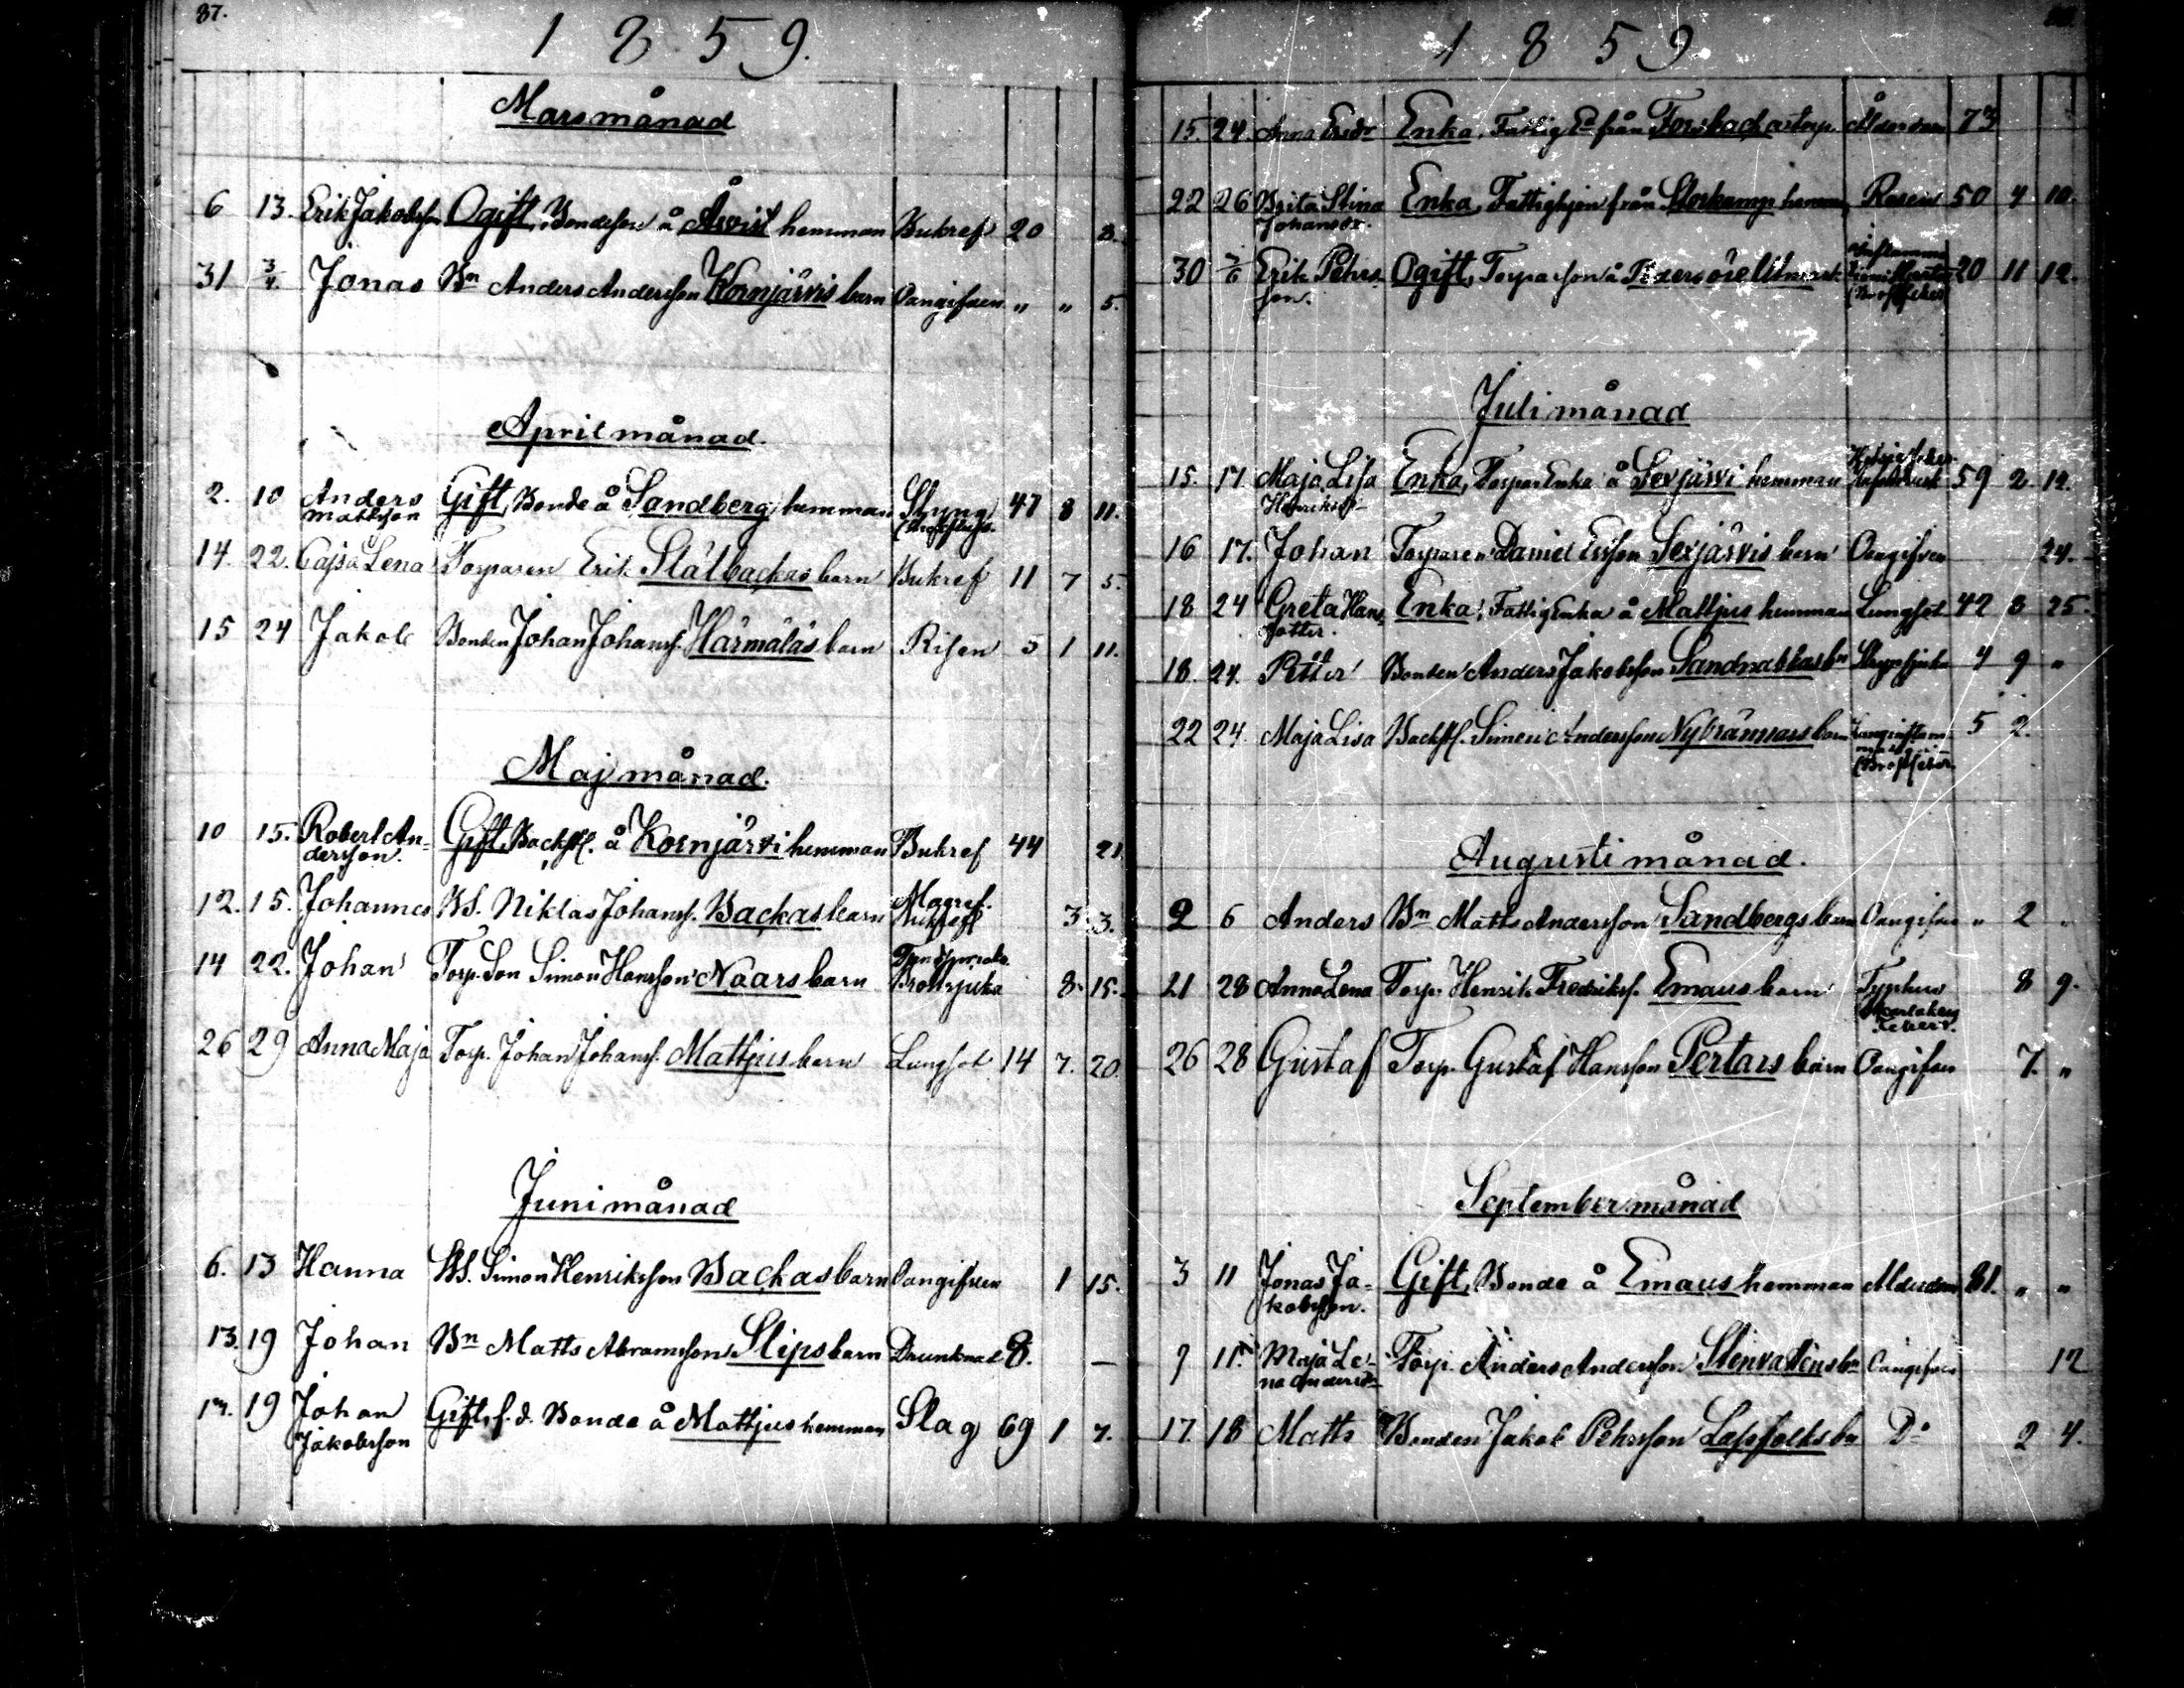 87.
1 8 5 9.
Mars månad
6 13. Erik Jakobsson Ogift, Bondeson å Åsvist hemman Bukref 20 3.
31 3/4 Jonas Bn Anders Andersson Kornjärvis barn Oangifven " " 5.
April månad.
2. 10 Anders Mattsson Gift, Bonde å Sandberg hemman Styng 47 8 11.
14. 22. Cajsa Lena Torparen Erik Stålbackas barn Bukref 11 7 5.
15 24 Jakob Bonden Johan Johanss. Härmäläs barn Risen 5 1 11.
Maj månad.
10 15. Robert Andersson. Gift, Backst. å Kornjärvi hemman Bukref 44 21
12. 15. Johannes BS. Niklas Johanss. Backas barn Magref. 3 3.
14 22. Johan Torp. Son Simon Hansson Naars barn Bröstsjuka 8. 15.
26 29 Anna Maja Torp. Johan Johanss. Mattjus barn Lungsot 14 7. 20.
Juni månad
6. 13 Hanna BS. Simon Henriksson Backas barn Oangifven 1 15.
13. 19 Johan Bn Matts Abramsson Slips barn Drunknad 8. —
19 Johan Jakobsson Gift, f.d. Bonde å Mattjus hemman Slag 69 1 7.
1 8 5 9
15. 24. Anna Ersdr Enka, Fattig Ea från Forsbacka torp. Ålderdom 73
22 26 Brita Stina Johansdr. Enka, Fattighjon från Storkamp hemman Rosen 50 4 10.
30 Erik Pehrsson. Ogift, Torpareson å 20 11 12.
(Bröstfeber)
Juli månad
15. 17 Maja Lisa Henriksdr Enka, Torpar Enka å Sexjärvi hemman 59 2. 12.
16 17. Johan Torparen Daniel Ersson Sexjärvis barn Oangifven 24.
18 24 Greta Hansdotter. Enka, Fattig Enka å Mattjus hemman Lungsot 42 8 25.
18. 24. Petter Bonden Anders Jakobsson Sandnabbas bn Strypsjuka 4 9 "
22 24. Maja Lisa Backst. Simon Andersson Nybrännars barn Lunginflammation (Bröstfeber) 5 2.
Augusti månad.
2 6 Anders Bn Matts Andersson Sandbergs barn Oangifven " 2 "
21 28 Anna Lena Torp. Henrik Fredrikss. Emaus barn Typhus 8 9.
26 28 Gustaf Torp. Gustaf Hansson Pertars barn Oangifven 7. "
September månad
3 11 Jonas Jakobsson. Gift, Bonde å Emaus hemman Ålderdom 81. " "
9 11. Maja Lena Andersdr Torp. Anders Andersson Stenvattens bn Oangifven 12
17 18 Matts Bonden Jakob Pehrsson Lappfolks bn Do 2 4.